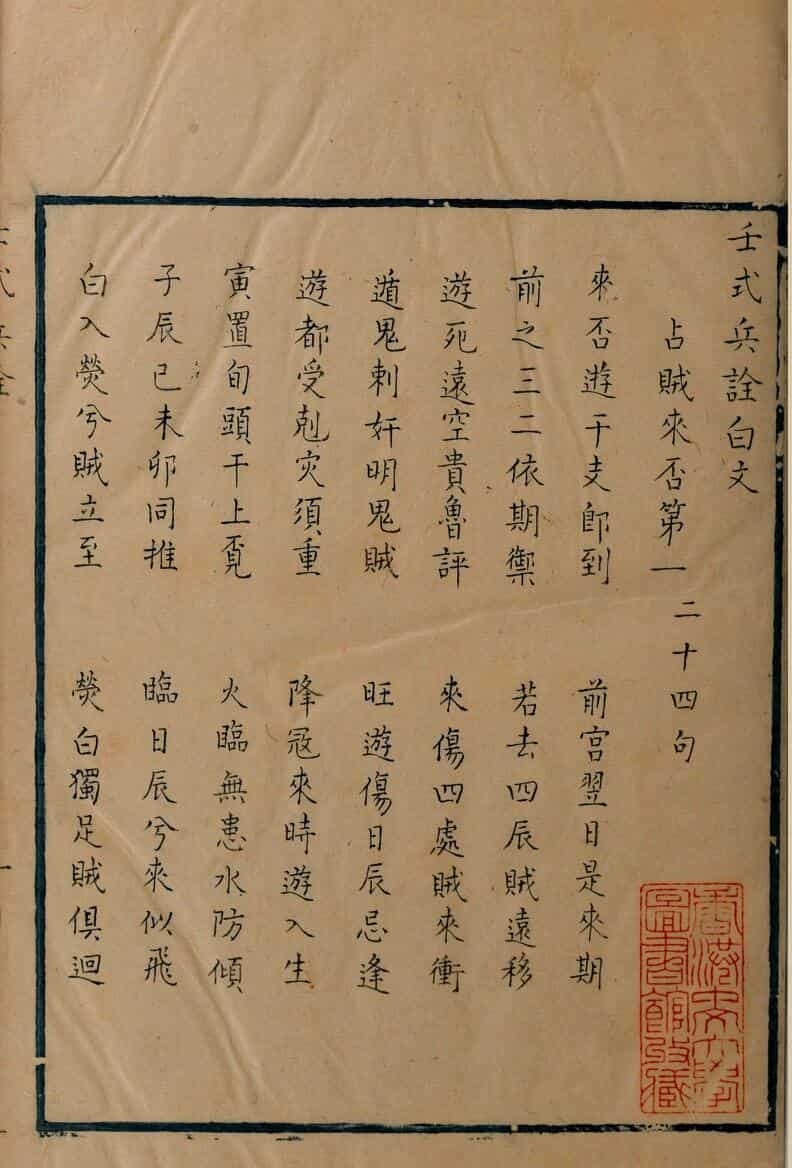 壬式兵詮白文
占賊來否第一 二十四句
來否遊干支即到 前宫翌日是來期
前之三二依期禦 若去四辰賊遠移
遊死遠空貴魯評 來傷四處賊來衝
遁鬼刺奸明鬼賊 旺遊傷日辰忌逢
遊都受剋灾須重 降冦來時遊入生
寅置旬頭干上覔 火臨無恙水防傾
子辰巳未卯同推 臨日辰兮來似飛
白入熒兮賊立至 熒白獨足賊俱迴
香港中文大學
圖書館收藏